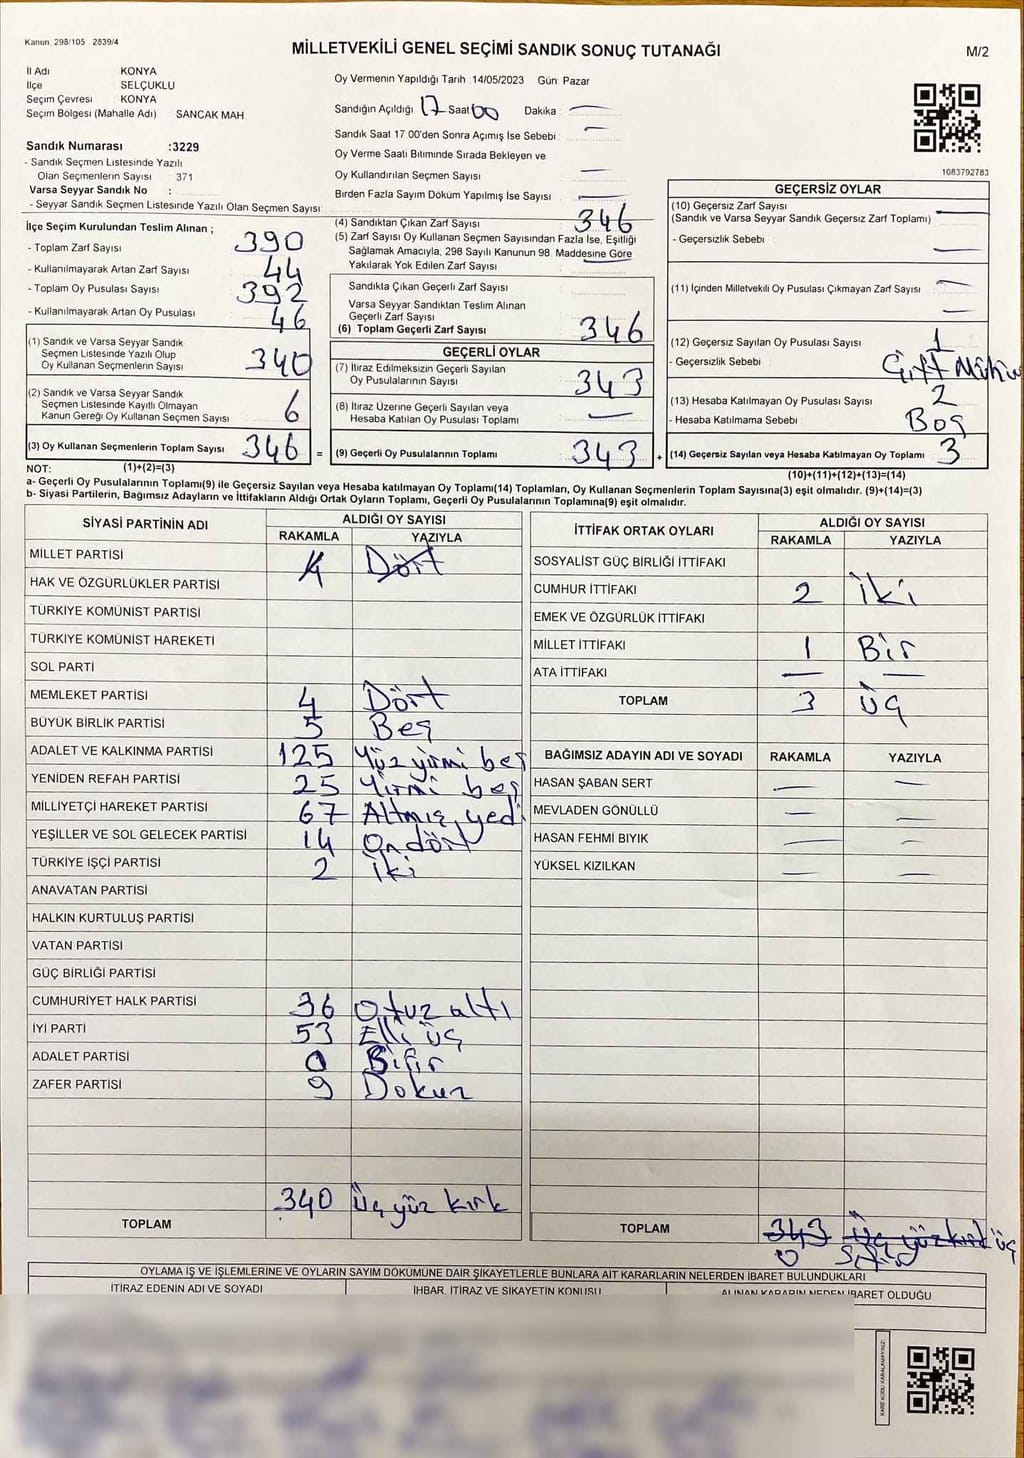 Kanun: 298/105 2839/4
MİLLETVEKİLİ GENEL SEÇİMİ SANDIK SONUÇ TUTANAĞI
M/2
İl Adı KONYA
İlçe SELÇUKLU
Seçim Çevresi KONYA
Seçim Bölgesi (Mahalle Adı) SANCAK MAH
Oy Vermenin Yapıldığı Tarih :14/05/2023 Gün: Pazar
Sandığın Açıldığı 17 Saat 00 Dakika : —
Sandık Saat 17 00'den Sonra Açımış İse Sebebi : —
Oy Verme Saati Bitiminde Sırada Bekleyen ve
Oy Kullandırılan Seçmen Sayısı : —
Birden Fazla Sayım Döküm Yapılmış İse Sayısı : —
Sandık Numarası :3229
- Sandık Seçmen Listesinde Yazılı
Olan Seçmenlerin Sayısı : 371
Varsa Seyyar Sandık No :
- Seyyar Sandık Seçmen Listesinde Yazılı Olan Seçmen Sayısı:
1083792783
İlçe Seçim Kurulundan Teslim Alınan ;
- Toplam Zarf Sayısı 390
- Kullanılmayarak Artan Zarf Sayısı 44
- Toplam Oy Pusulası Sayısı 392
- Kullanılmayarak Artan Oy Pusulası 46
(1) Sandık ve Varsa Seyyar Sandık
Seçmen Listesinde Yazılı Olup
Oy Kullanan Seçmenlerin Sayısı 340
(2) Sandık ve Varsa Seyyar Sandık
Seçmen Listesinde Kayıtlı Olmayan
Kanun Gereği Oy Kullanan Seçmen Sayısı 6
(3) Oy Kullanan Seçmenlerin Toplam Sayısı 346 =
(1)+(2)=(3)
(4) Sandıktan Çıkan Zarf Sayısı 346
(5) Zarf Sayısı Oy Kullanan Seçmen Sayısından Fazla İse, Eşitliği
Sağlamak Amacıyla, 298 Sayılı Kanunun 98. Maddesine Göre
Yakılarak Yok Edilen Zarf Sayısı —
Sandıkta Çıkan Geçerli Zarf Sayısı
Varsa Seyyar Sandıktan Teslim Alınan
Geçerli Zarf Sayısı
(6) Toplam Geçerli Zarf Sayısı 346
GEÇERLİ OYLAR
(7) İtiraz Edilmeksizin Geçerli Sayılan
Oy Pusulalarının Sayısı 343
(8) İtiraz Üzerine Geçerli Sayılan veya
Hesaba Katılan Oy Pusulası Toplamı —
(9) Geçerli Oy Pusulalarının Toplamı 343 +
GEÇERSİZ OYLAR
(10) Geçersiz Zarf Sayısı —
(Sandık ve Varsa Seyyar Sandık Geçersiz Zarf Toplamı)
- Geçersizlik Sebebi : —
(11) İçinden Milletvekili Oy Pusulası Çıkmayan Zarf Sayısı —
—
(12) Geçersiz Sayılan Oy Pusulası Sayısı 1
- Geçersizlik Sebebi : Çift
(13) Hesaba Katılmayan Oy Pusulası Sayısı 2
- Hesaba Katılmama Sebebi : Boş
(14) Geçersiz Sayılan veya Hesaba Katılmayan Oy Toplamı 3
(10)+(11)+(12)+(13)=(14)
NOT:
a- Geçerli Oy Pusulalarının Toplamı(9) ile Geçersiz Sayılan veya Hesaba katılmayan Oy Toplamı(14) Toplamları, Oy Kullanan Seçmenlerin Toplam Sayısına(3) eşit olmalıdır. (9)+(14)=(3)
b- Siyasi Partilerin, Bağımsız Adayların ve İttifakların Aldığı Ortak Oyların Toplamı, Geçerli Oy Pusulalarının Toplamına(9) eşit olmalıdır.
SİYASİ PARTİNİN ADI ALDIĞI OY SAYISI
RAKAMLA YAZIYLA
MİLLET PARTİSİ 4 Dört
HAK VE ÖZGÜRLÜKLER PARTİSİ
TÜRKİYE KOMÜNİST PARTİSİ
TÜRKİYE KOMÜNİST HAREKETİ
SOL PARTİ
MEMLEKET PARTİSİ 4 Dört
BÜYÜK BİRLİK PARTİSİ 5 Beş
ADALET VE KALKINMA PARTİSİ 125 Yüz yirmi beş
YENİDEN REFAH PARTİSİ 25 Yirmi beş
MİLLİYETÇİ HAREKET PARTİSİ 67 Altmış yedi
YEŞİLLER VE SOL GELECEK PARTİSİ 14 On dört
TÜRKİYE İŞÇİ PARTİSİ 2 İki
ANAVATAN PARTİSİ
HALKIN KURTULUŞ PARTİSİ
VATAN PARTİSİ
GÜÇ BİRLİĞİ PARTİSİ
CUMHURİYET HALK PARTİSİ 36 Otuz altı
İYİ PARTİ 53 Elli üç
ADALET PARTİSİ 0
ZAFER PARTİSİ 9 Dokuz
TOPLAM 340 Üç yüz kırk
İTTİFAK ORTAK OYLARI ALDIĞI OY SAYISI
RAKAMLA YAZIYLA
SOSYALİST GÜÇ BİRLİĞİ İTTİFAKI
CUMHUR İTTİFAKI 2 İki
EMEK VE ÖZGÜRLÜK İTTİFAKI
MİLLET İTTİFAKI 1 Bir
ATA İTTİFAKI — —
TOPLAM 3 Üç
BAĞIMSIZ ADAYIN ADI VE SOYADI RAKAMLA YAZIYLA
HASAN ŞABAN SERT — —
MEVLADEN GÖNÜLLÜ — —
HASAN FEHMİ BIYIK — —
YÜKSEL KIZILKAN — —
TOPLAM 343 Üç yüz kırk üç
0 Sıfır
OYLAMA İŞ VE İŞLEMLERİNE VE OYLARIN SAYIM DÖKÜMÜNE DAİR ŞİKAYETLERLE BUNLARA AİT KARARLARIN NELERDEN İBARET BULUNDUKLARI
İTİRAZ EDENİN ADI VE SOYADI İHBAR, İTİRAZ VE ŞİKAYETİN KONUSU ALINAN KARARIN NEDEN İBARET OLDUĞU